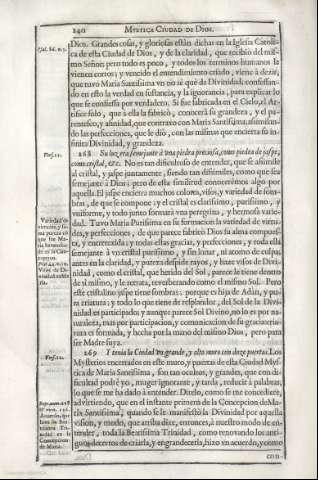 240 MYSTICA CIUDAD DE DIOS.
Dios. Grandes cosas, y gloriosas están dichas en la Iglesia Catoli-
ca de esta Ciudad de Dios, y de la claridad, que recibiò del mis-
mo Señor; pero todo es poco, y todos los terminos humanos le
vienen cortos; y vencido el entendimiento criado, viene à dezir,
que tuvo Maria Santissima vn no sè què de Divinidad; confessan-
do en esto la verdad en sustancia, y la ignorancia, para explicar lo
que se confiessa por verdadero. Si fue fabricada en el Cielo, el Ar-
tifice solo, que à ella la fabricò, conocerà su grandeza, y el pa-
rentesco, y afinidad, que contraxo con Maria Santissima, assemejan-
do las perfecciones, que le diò, con las mismas que encierra su in-
finita Divinidad, y grandeza.
Psal. 86. n. 3.
268 Su luz era semejante à vna piedra preciosa, como piedra de jaspe,
como cristal, &c. No es tan dificultoso de entender, que se assimile
al cristal, y jaspe juntamente, siendo tan dissimiles, como que sea
semejante à Dios: pero de esta similitud conoceremos algo por
aquella. El jaspe encierra muchos colores, visos, y variedad de som-
bras, de que se compone; y el cristal es clarissimo, purissimo, y
vniforme, y todo junto formarà vna peregrina, y hermosa varie-
dad. Tuvo Maria Purissima en su formacion la variedad de virtu-
des, y perfecciones, de que parece fabricò Dios su alma compues-
ta, y entretexida; y todas estas gracias, y perfecciones, y toda ella
semejante à vn cristal purissimo, y sin lunar, ni atomo de culpa:
antes en la claridad, y pureza despide rayos, y haze visos de Divi-
nidad, como el cristal, que herido del Sol, parece le tiene dentro
de sì mismo, y le retrata, reverberando como el mismo Sol. Pero
este cristalino jaspe tiene sombras; porque es hija de Adàn, y pu-
ra criatura; y todo lo que tiene de resplandor, del Sol de la Divi-
nidad es participado; y aunque parece Sol Divino, no lo es por na-
turaleza, mas por participacion, y comunicacion de su gracia: cria-
tura es formada, y hecha por la mano del mismo Dios, pero para
ser Madre suya.
Vers. 11.
Variedad de
virtudes, y su-
ma pureza con
que fue Ma-
ria hermosea-
da en su Con-
cepcion.
Visos de Di-
vinidad
269 Y tenia la Ciudad vn grande, y alto muro con doze puertas. Los
Mysterios encerrados en este muro, y puertas de esta Ciudad Mysti-
ca de Maria Santissima, son tan ocultos, y grandes, que con di-
ficultad podrè yo, muger ignorante, y tarda, reducir à palabras,
lo que se me ha dado à entender. Dirèlo, como se me concediere,
advirtiendo, que en el instante primero de la Concepcion de Ma-
ria Santissima, quando se le manifestò la Divinidad por aquella
vision, y modo, que arriba dixe, entonces, à nuestro modo de en-
tender, toda la Beatissima Trinidad, como renovando los anti-
guos decretos de criarla, y engrandecerla, hizo vn acuerdo, y como
Vers. 12.
con-